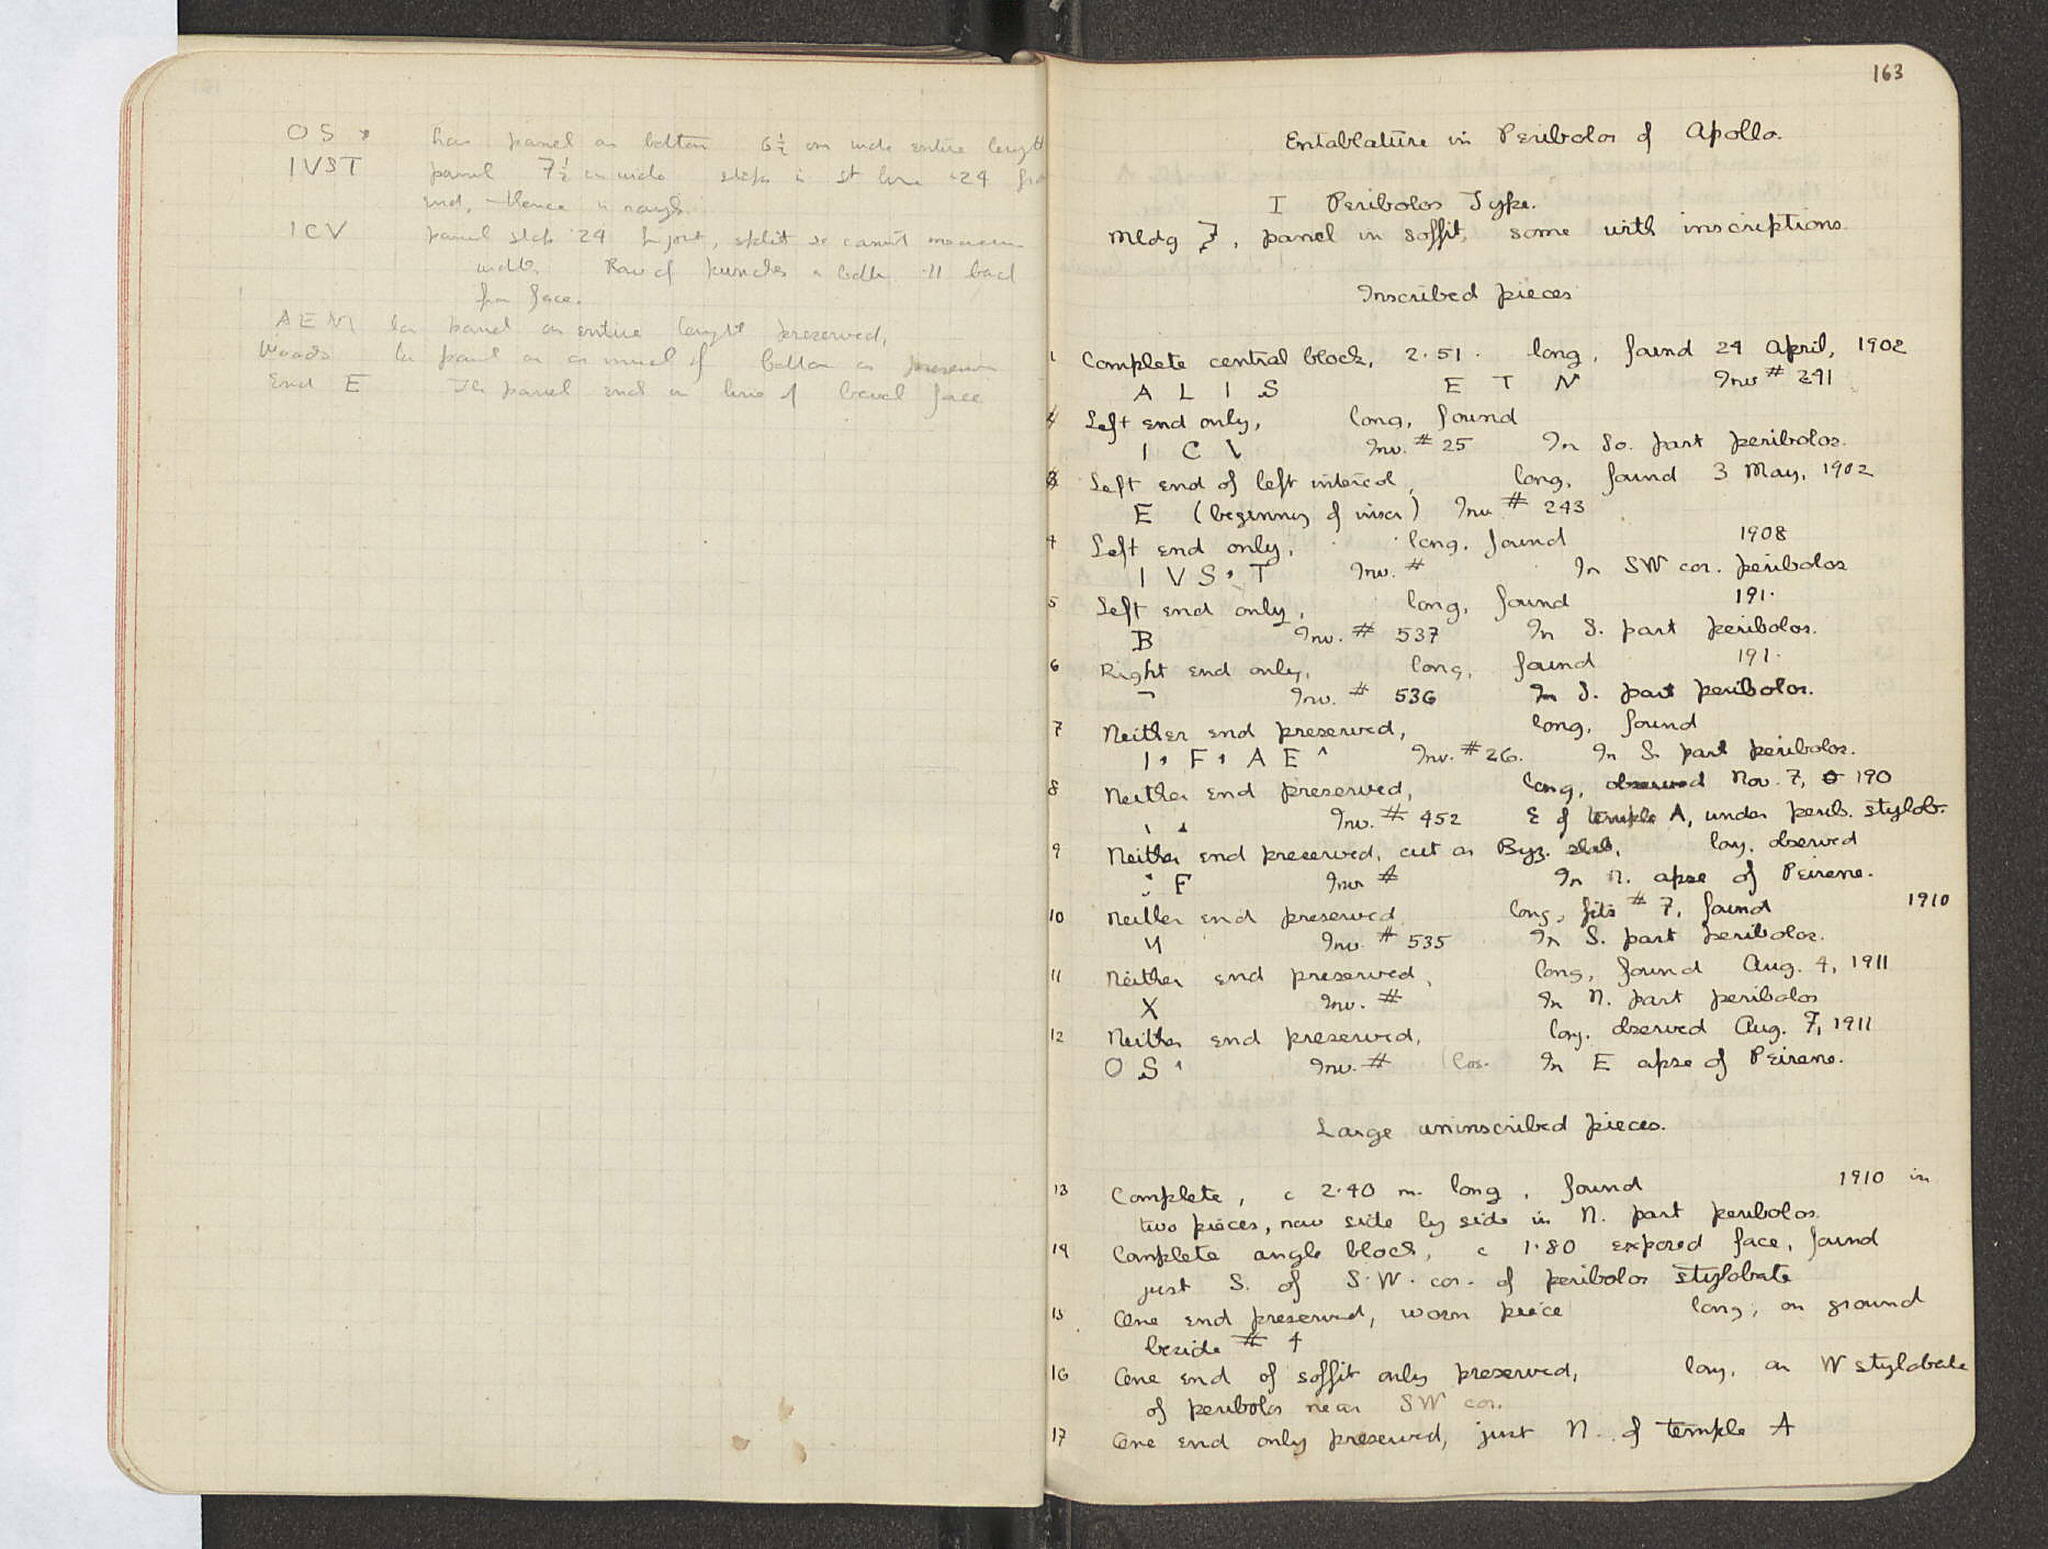 OS • has panel on bottom 6½ cm wide entire length
IVST panel 7½ cm wide stops in st line .24 from
end, thence is rough.
ICV panel stops .24 fr joint, split so cannot measure
width. Row of punches on bottom .11 back
from face.
AEM has panel on entire length preserved,
has panel on as much of bottom as preserved
End E The panel ends in line of bevel face
163
Entablature in Peribolos of Apollo.
I Peribolos Type.
Mldg 7, panel in soffit, some with inscriptions
Inscribed pieces
1 Complete central block, 2.51. long, found 24 April, 1902
A L I S E T N Inv # 241
Left end only, long, found
I C V Inv. # 25 In So. part peribolos.
3 Left end of left intercol, long, found 3 May, 1902
E (beginning of inscr) Inv # 243
4 Left end only, long, found 1908
I V S • T Inv. # In SW cor. peribolos
5 Left end only, long, found 191.
B Inv. # 537 In S. part peribolos.
6 Right end only, long, found 191.
¬ Inv. # 536 In S. part peribolos.
7 Neither end preserved, long, found
I • F • A E ^ Inv. # 26. In S. part peribolos.
8 Neither end preserved, long, observed Nov. 7, 190
Inv. # 452 E of temple A, under perib. stylob.
9 Neither end preserved, cut as Byz. slab, long, observed
: F Inv # In N. apse of Peirene.
10 Neither end preserved long, fits # 7, found 1910
Inv # 535 In S. part peribolos.
11 Neither end preserved, long, found Aug. 4, 1911
X Inv. # In N. part peribolos
12 Neither end preserved, long, observed Aug. 7, 1911
O S • Inv. # In E apse of Peirene.
Large uninscribed pieces.
13 Complete, c 2.40 m. long, found 1910 in
two pieces, now side by side in N. part peribolos.
14 Complete angle block, c 1.80 exposed face, found
just S. of S.W. cor. of peribolos stylobate
15 One end preserved, worn piece long, on ground
beside # 4
16 One end of soffit only preserved, long, on W stylobate
of peribolos near SW cor.
17 One end only preserved, just N. of temple A